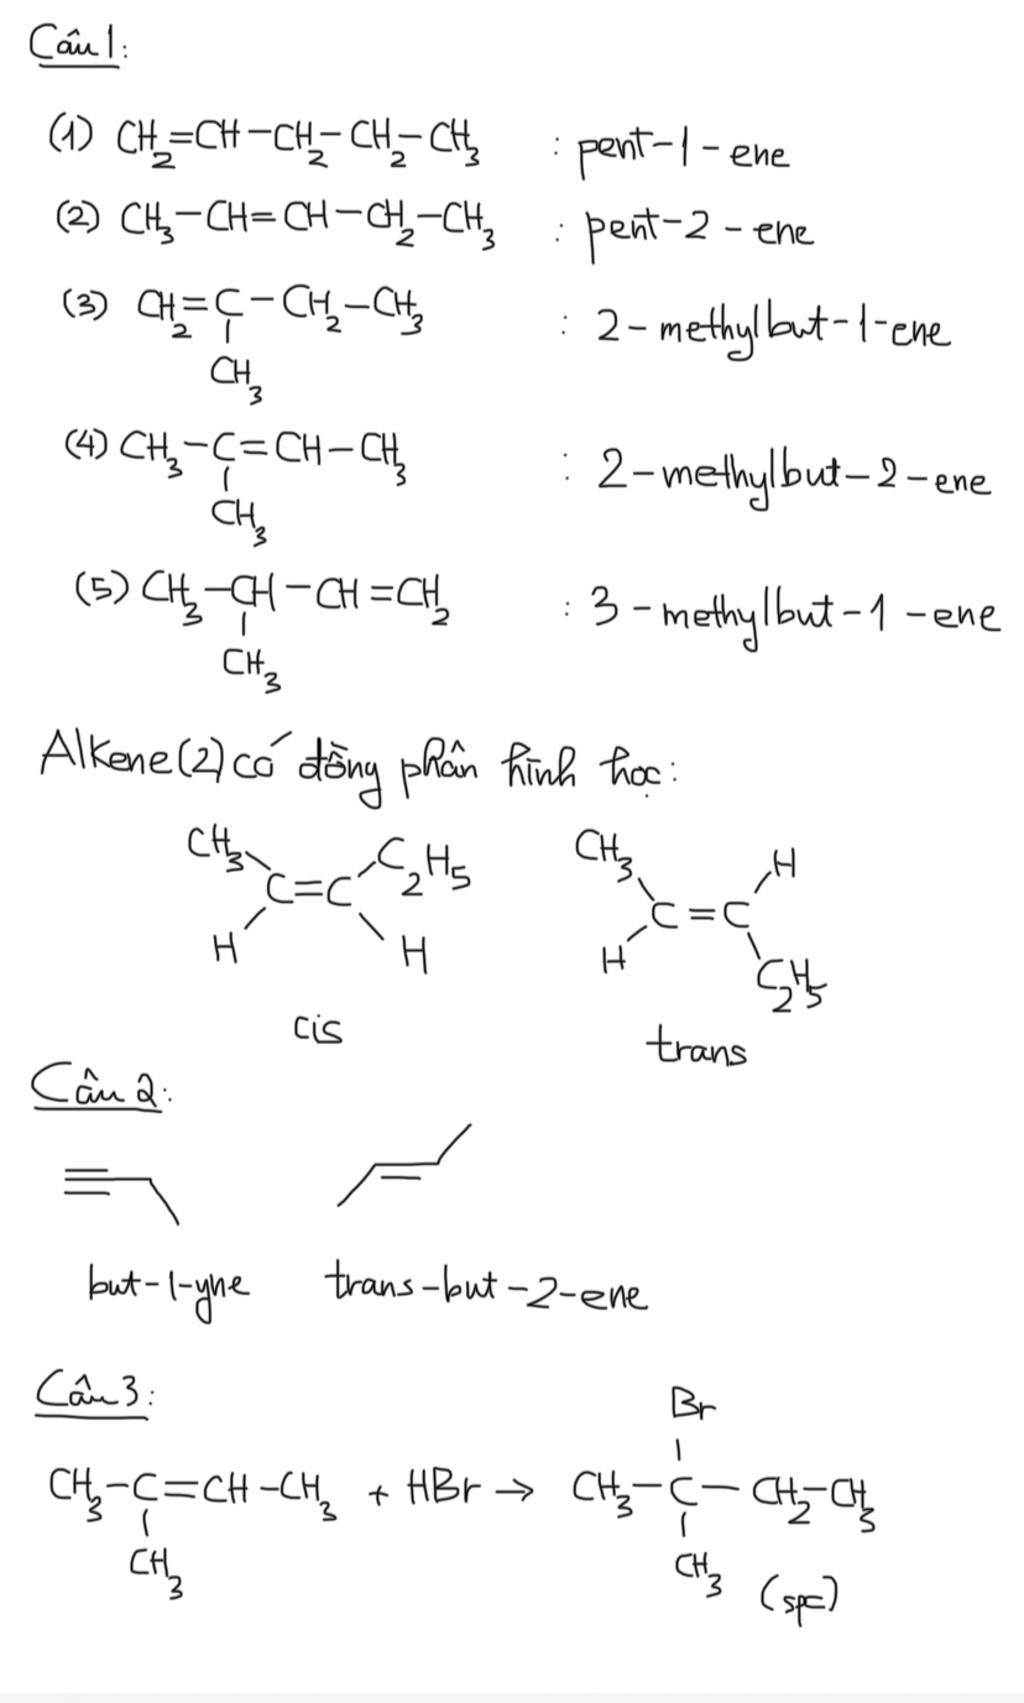 Câu 1:
(1) CH2=CH-CH2-CH2-CH3 : pent-1-ene
(2) CH3-CH=CH-CH2-CH3 : pent-2-ene
(3) CH2=C-CH2-CH3 : 2-methylbut-1-ene
CH3
(4) CH3-C=CH-CH3 : 2-methylbut-2-ene
CH3
(5) CH3-CH-CH=CH2 : 3-methylbut-1-ene
CH3
Alkene (2) có đồng phân hình học:
CH3 C2H5 CH3 H
C=C C=C
H H H C2H5
cis trans
Câu 2:
but-1-yne trans-but-2-ene
Câu 3:
Br
CH3-C=CH-CH3 + HBr → CH3-C-CH2-CH3
CH3 CH3 (spc)